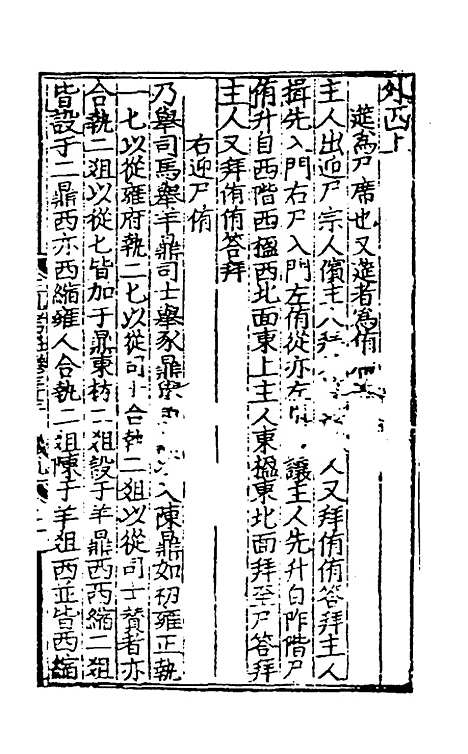 外西上
筵為尸席也又筵者為侑
主人出迎尸宗人儐主人拜人又拜侑侑答拜主人
揖先入門右尸入門左侑從亦左讓主人先升自阼階尸
侑升自西階西楹西北面東上主人東楹東北面拜至尸答拜
主人又拜侑侑答拜
右迎尸侑
乃舉司馬舉羊鼎司士舉豕鼎入陳鼎如初雍正執
一匕以從雍府執二匕以從司士合執二俎以從司士贊者亦
合執二俎以從匕皆加于鼎東枋二俎設于羊鼎西西縮二俎
皆設于二鼎西亦西縮雍人合執二俎陳于羊俎西並皆西縮